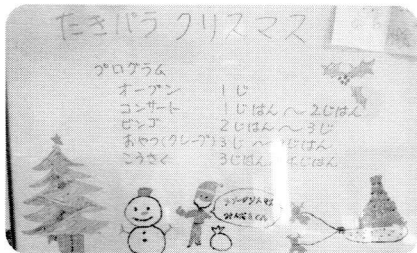 たきパラ クリスマス
プログラム
オープン 1じ
コンサート 1じはん〜2じはん
ビンゴ 2じはん〜3じ
おやつ(クレープ) 3じ〜 じはん
こうさく 3じはん〜 じはん